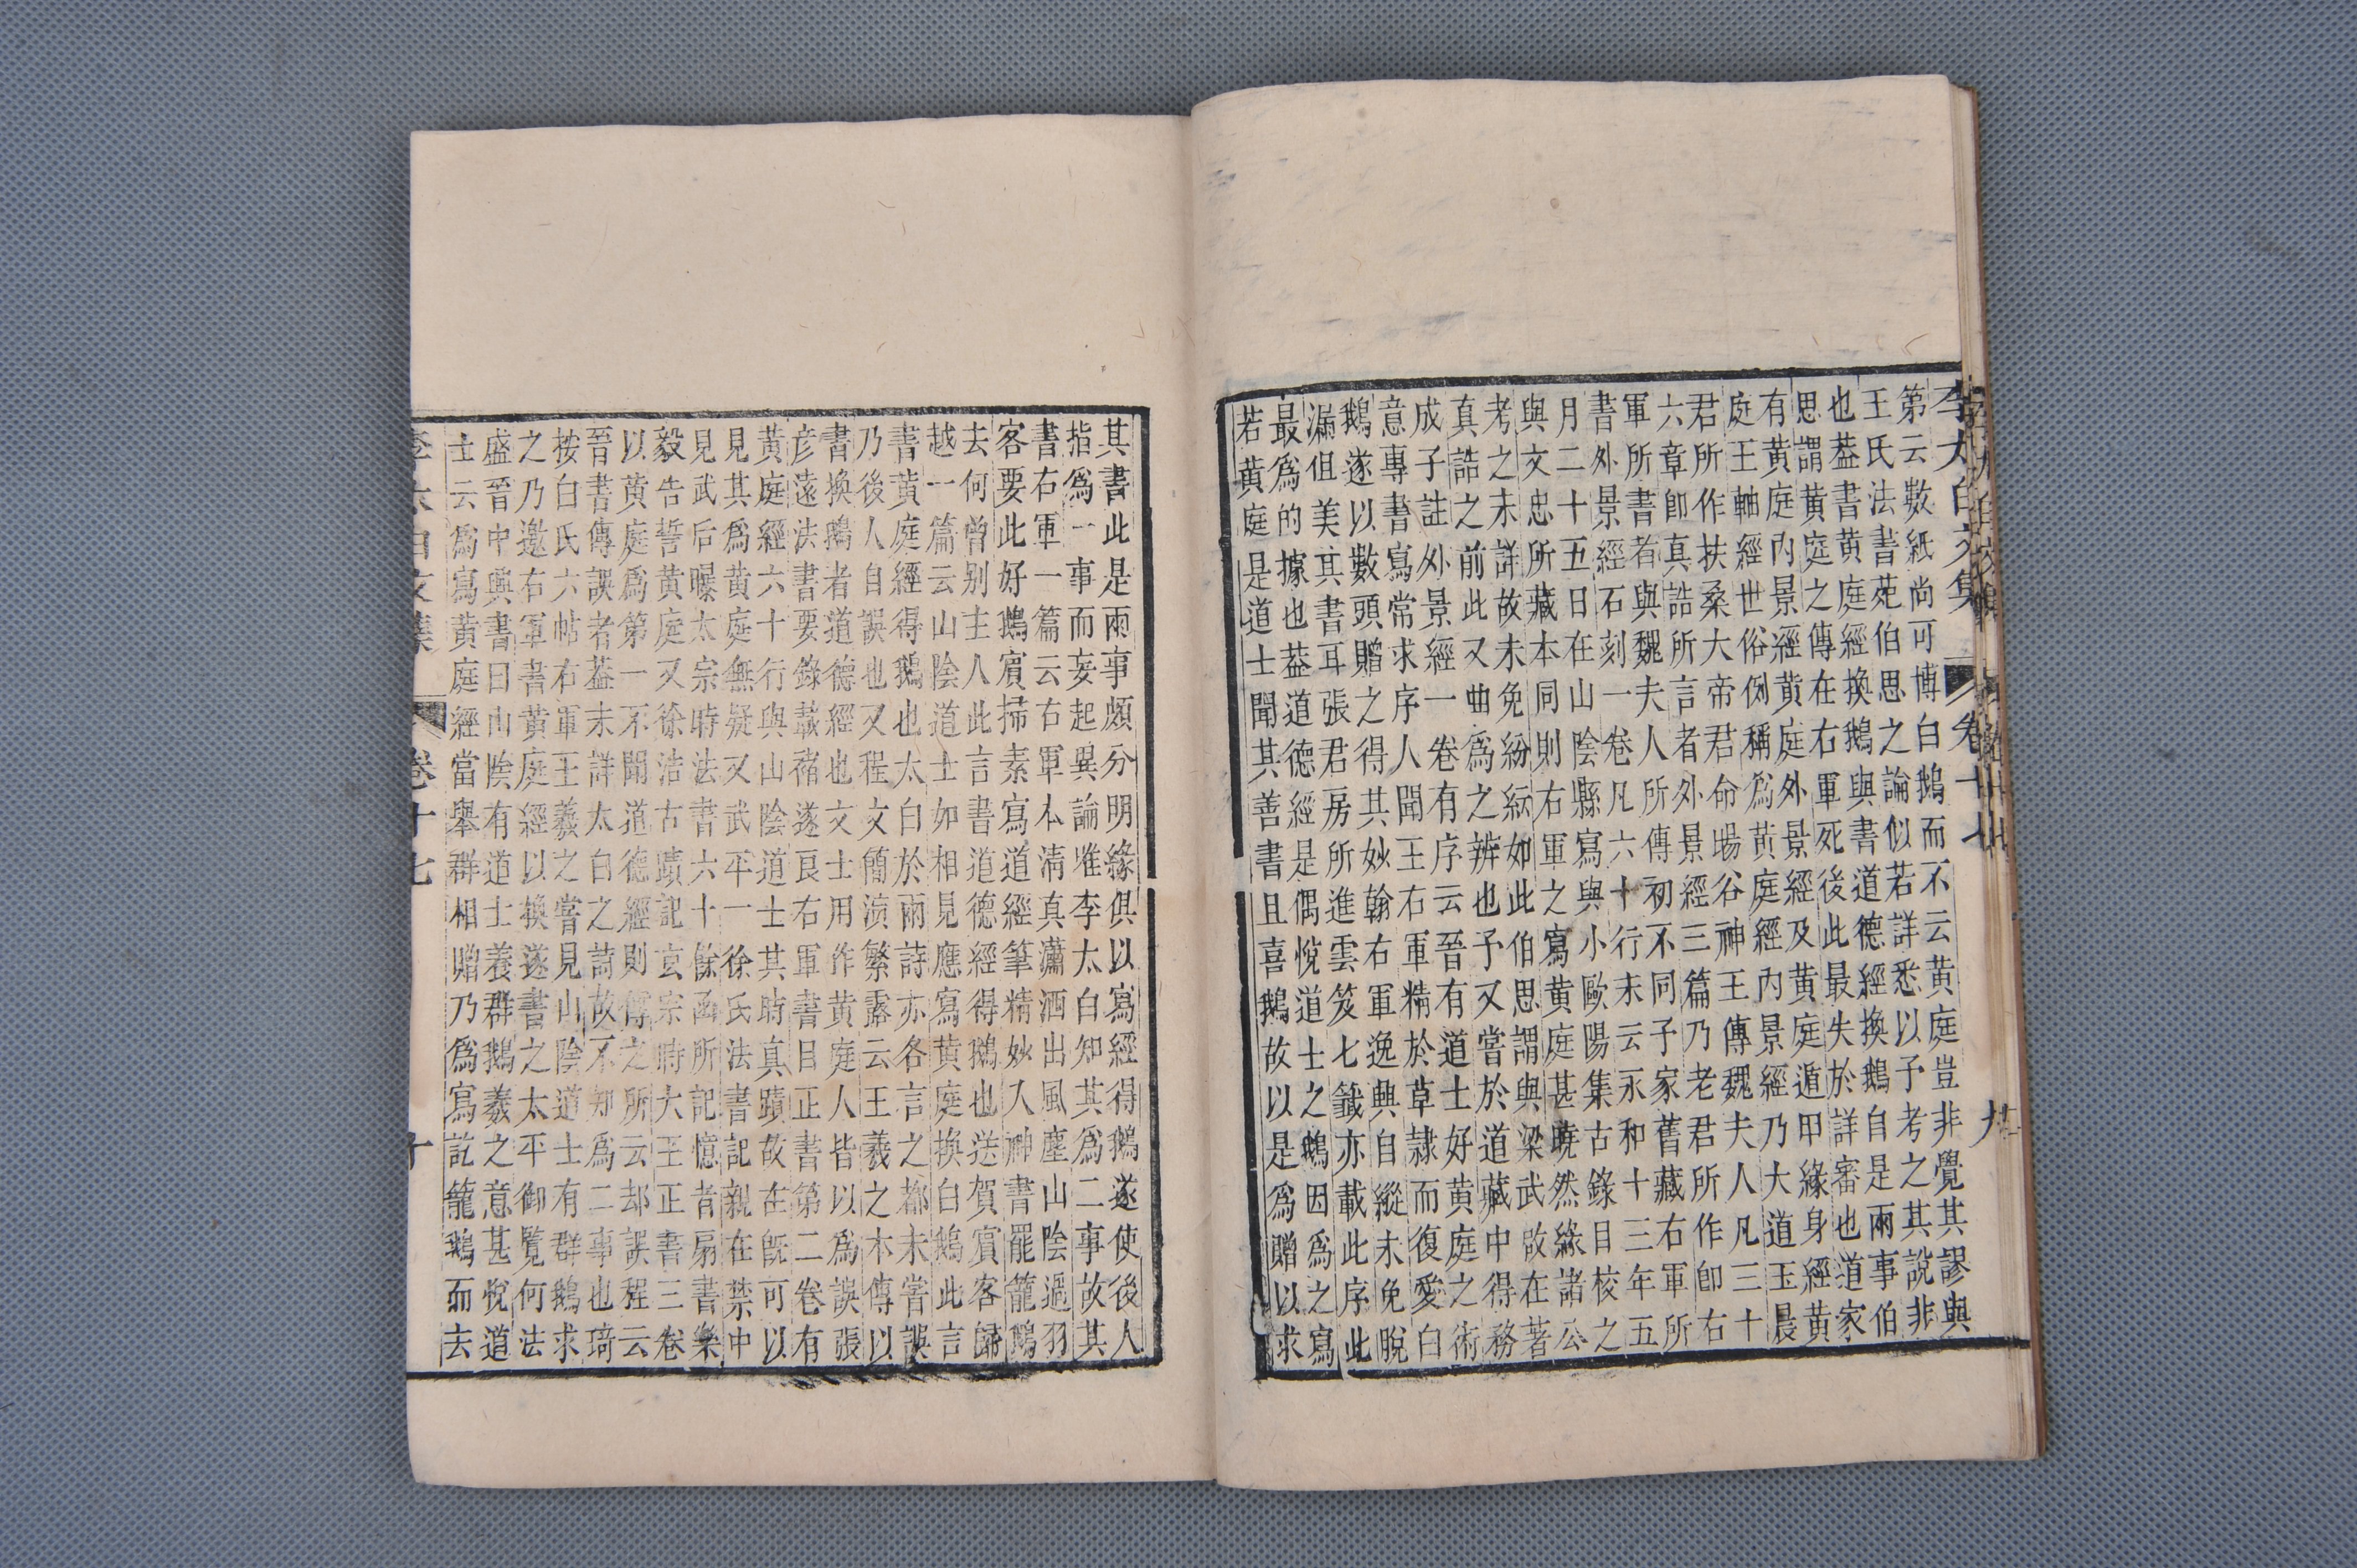 李太白文集 卷十七 九
第云數紙尚可博白鵝而不云黃庭豈非覺其謬與
王氏法書苑伯思之論似若詳悉以予考之其說非
也葢書黃庭經換鵝與書道德經換鵝自是兩事伯
思謂黃庭之傳在右軍死後此最失於詳審也道家
有黃庭內景經黃庭外景經及黃庭遁甲緣身經黃
庭王軸經世俗例稱爲黃庭經內景經乃大道玉晨
君所作扶桑大帝君命暘谷神王傳魏夫人凡三十
六章卽真誥所言者外景經三篇乃老君所作卽右
軍所書者與魏夫人所傳初不同子家舊藏右軍所
書外景經石刻一卷凡六十行末云永和十三年五
月二十五日在山陰縣寫與小歐陽集古錄目校之
與文忠所藏本同則右軍之寫黃庭甚曉然緣諸公
考之未詳故未免紛紜如此伯思謂與梁武啟在著
真誥之前此又曲爲之辨也予又嘗於道藏中得務
成子註外景經一卷有序云晉有道士好黃庭之術
意專書寫常求序人聞王右軍精於草隸而復愛白
鵝遂以數頭贈之得其妙翰右軍逸興自縱未免脫
漏但美其書耳張君房所進雲笈七籤亦載此序此
最爲的據也葢道德經是偶悅道士之鵝因爲之寫
若黃庭是道士聞其善書且喜鵝故以是爲贈以求
其書此是兩事頗分明緣俱以寫經得鵝遂使後人
指爲一事而妄起異論唯李太白知其爲二事故其
書右軍一篇云右軍本清真瀟洒出風塵山陰過羽
客要此好鵝賓掃素寫道經筆精妙入神書罷籠鵝
去何曾別主人此言書道德經得鵝也送賀賓客歸
越一篇云山陰道士如相見應寫黃庭換白鵝此言
書黃庭經得鵝也太白於兩詩亦各言之都未嘗誤
乃後人自誤也又程文簡演繁露云王羲之本傳以
書換鵝者道德經也文士用作黃庭人皆以爲誤張
彥遠法書要錄載褚遂良右軍書目正書第二卷有
黃庭經六十行與山陰道士其時真蹟故在既可以
見其爲黃庭無疑又武平一徐氏法書記親在禁中
見武后曝太宗時法書六十餘函所記憶者扇書樂
毅告誓黃庭又徐浩古蹟記玄宗時大王正書三卷
以黃庭爲第一不聞道德經則傳之所云却誤程云
晉書傳誤者葢未詳太白之詩故不知爲二事也琦
按白氏六帖右軍王羲之嘗見山陰道士有群鵝求
之乃邀右軍書黃庭經以換遂書之太平御覽何法
盛晉中興書曰山陰有道士養群鵝羲之意甚悅道
士云爲寫黃庭經當舉群相贈乃爲寫訖籠鵝而去
李太白文集 卷十七 十